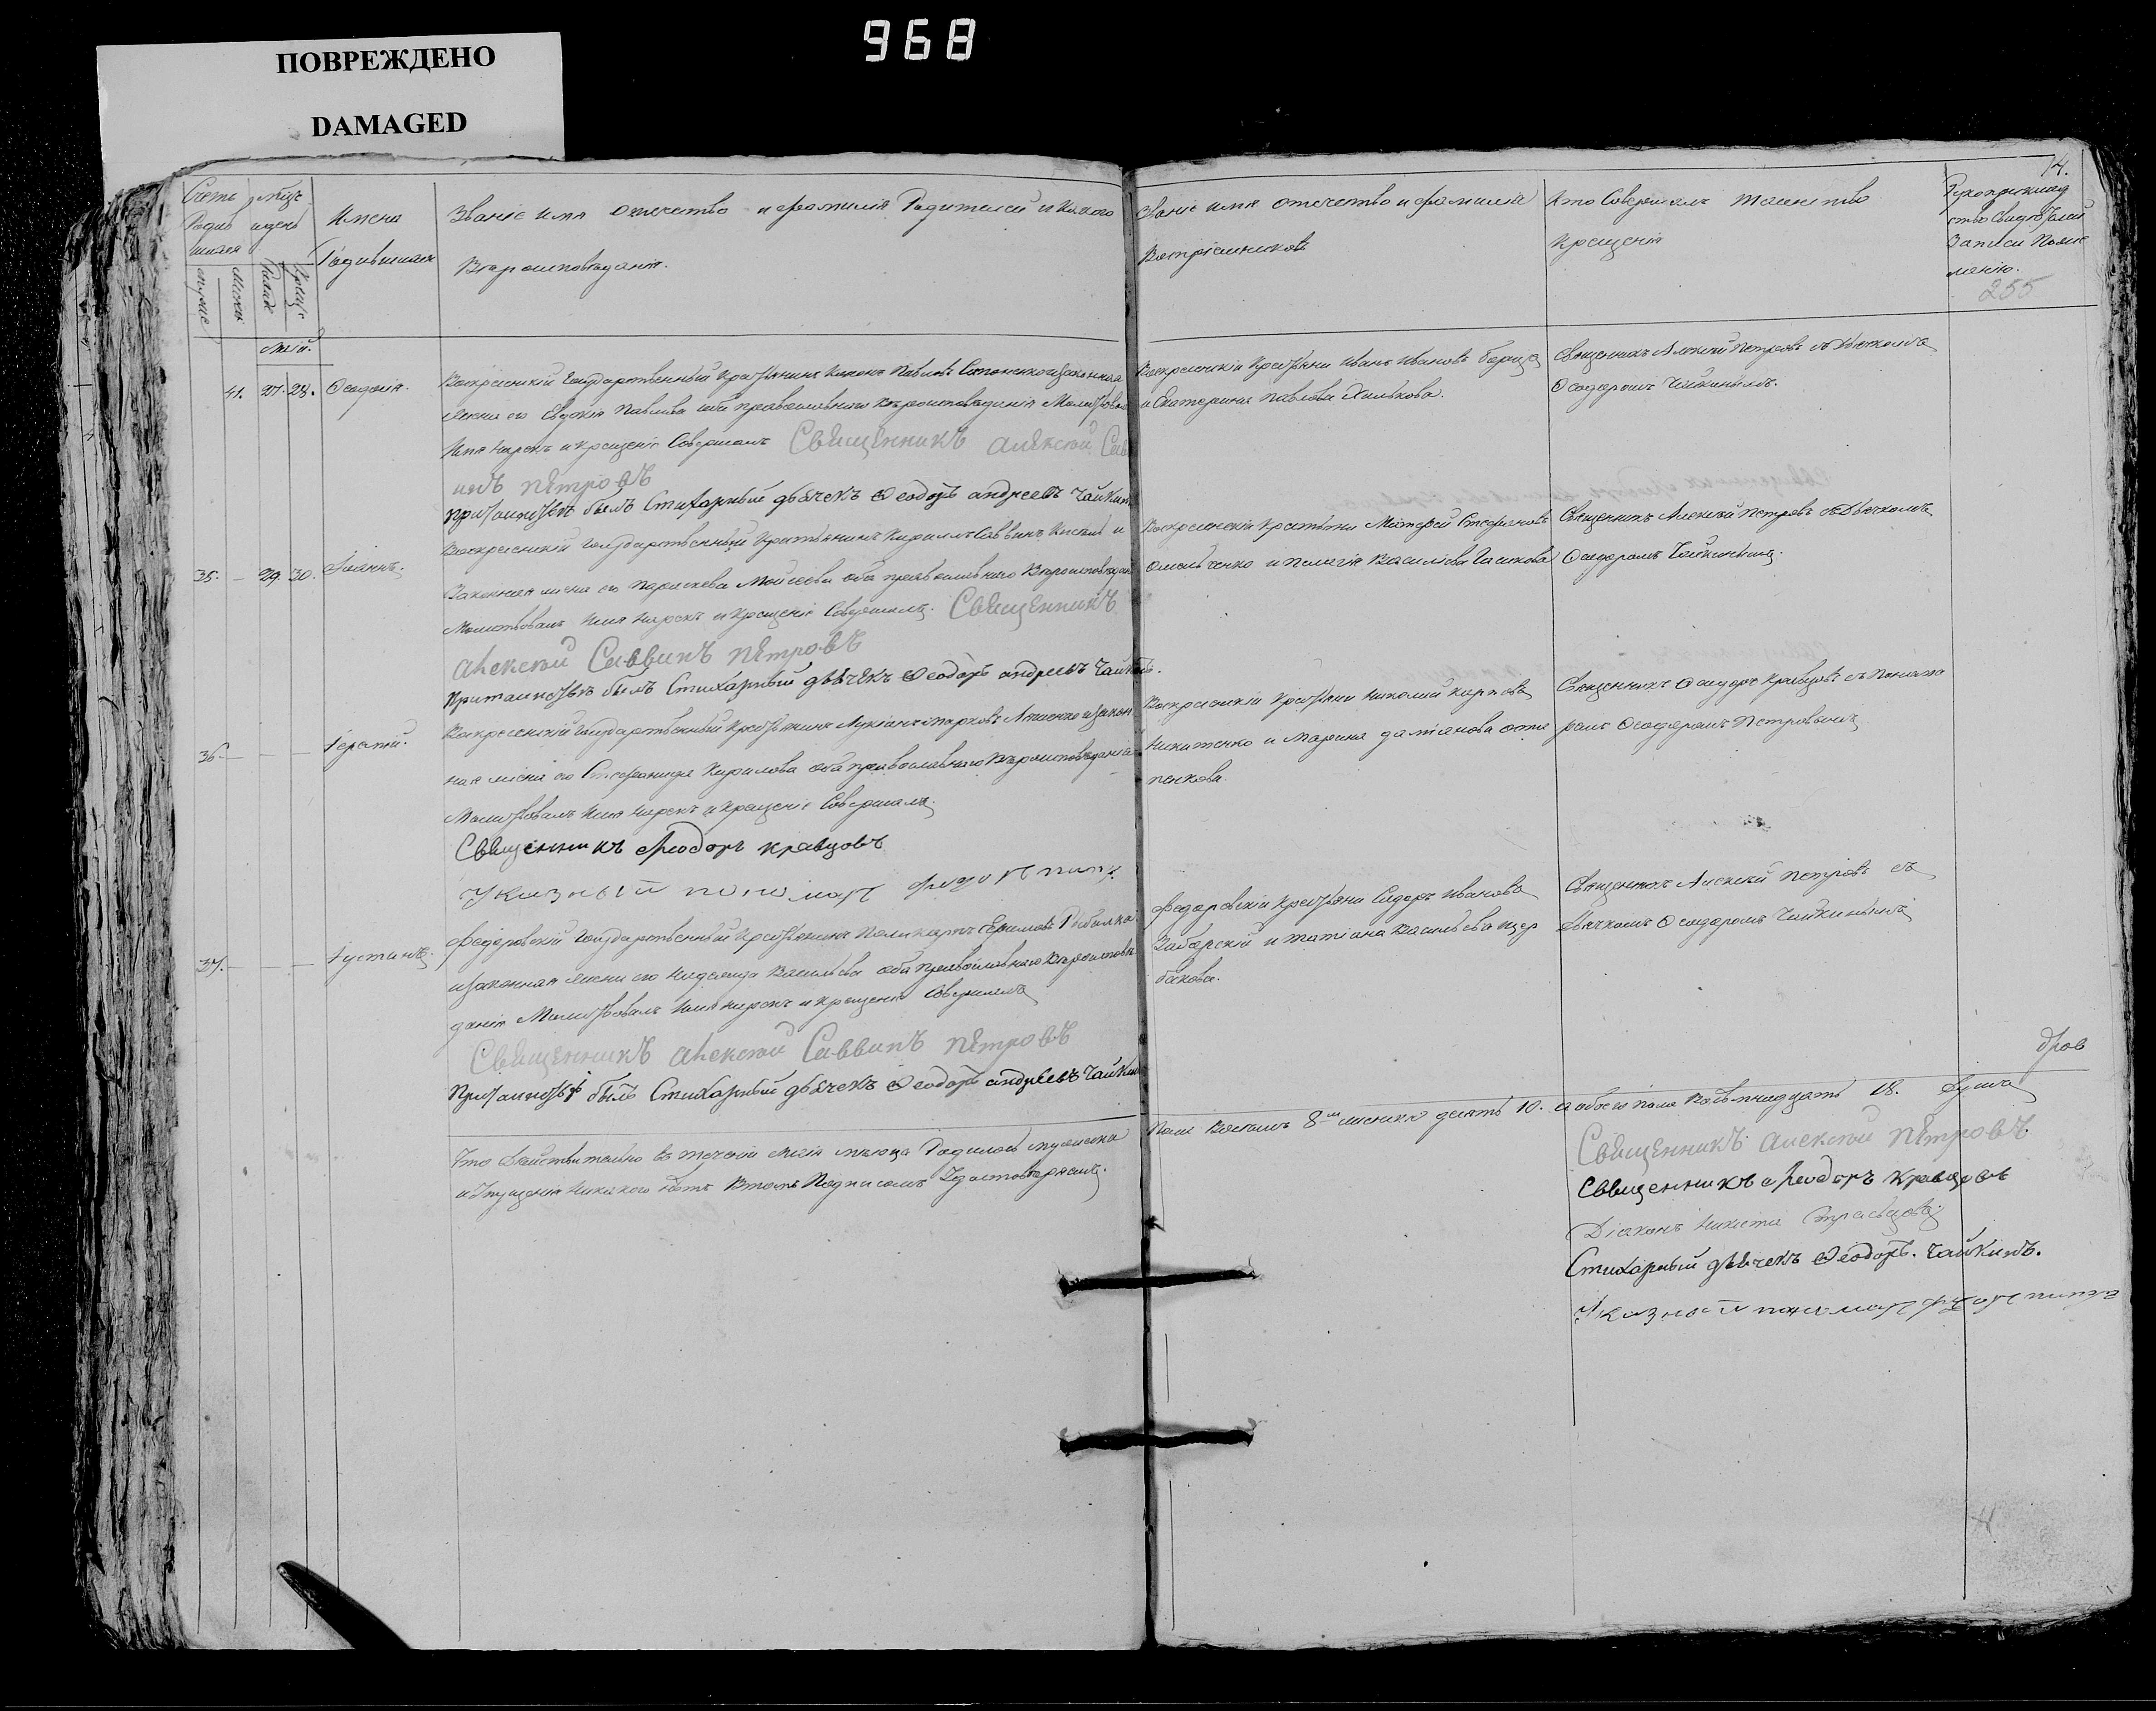 968
ПОВРЕЖДЕНО
DAMAGED
14.
Счетъ
Родив
шихся
мѣсц
и день
Имена
Родившихся
Званіе имя отчество и фамилія Родителей и какого
Вѣроисповѣданія.
Званіе имя отечество и фамилія
Воспріемниковъ
Кто Совершалъ таинство
Крещенія
Рукоприклад
ство Свидѣтелей
Записи по же
ланію.
255
Май.
41. 27. 28. Ѳеодосія.
Воскресенскій Государственный Крестьянинъ Никонъ Павловъ и законная
жена его Евдокія Павлова оба православнаго вѣроисповѣданія Молитвовалъ
Имя нарекъ и крещеніе Совершалъ Священникъ алексѣй Сав
инъ пѣтровъ
При таинствѣ былъ Стихарный дьячекъ Ѳеодоръ андреевъ чайкинъ
Воскресенскій Крестьянинъ Иванъ Ивановъ
и Екатерина Павлова
Священникъ Алексѣй Петровъ съ Дьячкомъ
Ѳеодоромъ Чайкинымъ.
35. — 29. 30. Іоаннъ.
Воскресенскій Государственный Крестьянинъ Кириллъ Саввинъ и
Законная жена его Параскева Мойсеева оба православнаго Вѣроисповѣданія
Молитвовалъ Имя нарекъ и Крещеніе Совершалъ. Священникъ
алексѣй Саввинъ пѣтровъ
При таинствѣ былъ Стихарный дьячекъ Ѳеодоръ андреевъ чайкинъ.
Воскресенскія Крестьяни Матфей Стефановъ
Омельченко и Пелагія Василіева
Священникъ Алексѣй Петровъ съ Дьячкомъ
Ѳеодоромъ Чайкинымъ.
36. — — — Іерапій.
Воскресенскій Государственный Крестьянинъ Лукіанъ Марковъ и закон
ная жена его Стефанида Кирилова оба православнаго Вѣроисповѣданія
Молитвовалъ Имя нарекъ и Крещеніе Совершалъ.
Священникъ Ѳеодоръ кравцовъ
Указный пономарь
Воскресенскіи Крестьяни Николай Карповъ
Никитенко и Марина даміанова Оста
пенкова.
Священникъ Ѳеодоръ Кравцовъ съ Понома
ремъ Ѳеодоромъ Петровымъ
37. — — Іустинъ.
Федоровскій Государственный Крестьянинъ Поликарпъ Ефимовъ
и законная жена его Надежда Васильева оба Православнаго Вѣроисповѣ
данія Молитвовалъ Имя нарекъ и крещеніе Совершалъ
Священникъ алексѣй Саввинъ пѣтровъ
При таинствѣ былъ Стихарный дьячекъ Ѳеодоръ андреевъ чайкинъ
Федоровскіи Крестьяни Сидоръ Ивановъ
Забарскій и татіана Васильева щер
бакова.
Священникъ Алексѣй Петровъ съ
Дьячкомъ Ѳеодоромъ Чайкинымъ
Что Дѣйствительно въ теченіи Маія мѣсяца Родилось мужеска
Пола Восемь 8 женска десять 10. а обоего пола Восѣмнадцать 18. душъ
и Упущенія никакого нѣтъ Втомъ Подписомъ Удостовѣряемъ.
Священникъ алексѣй пѣтровъ
Священникъ Ѳеодоръ кравцовъ
Діаконъ Никита
Стихарный дьячекъ Ѳеодоръ. чайкинъ.
Указной пономарь